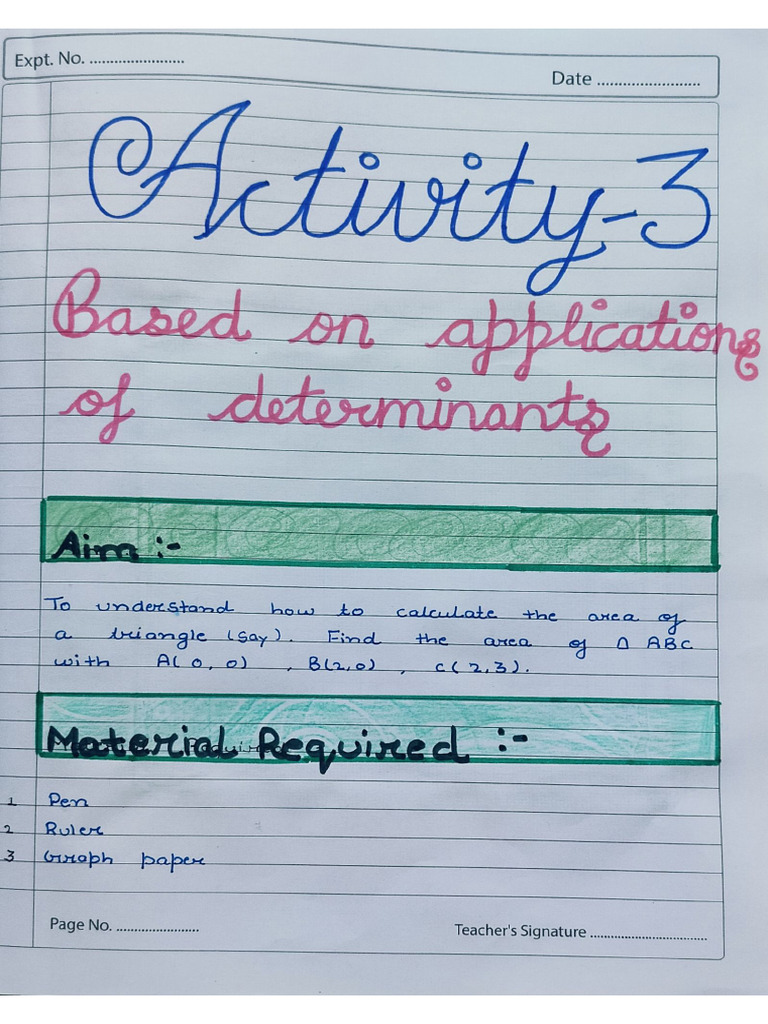 Expt. No. ........................
Date ........................
Activity-3
Based on applications
of determinants
Aim :-
To understand how to calculate the area of
a triangle (say). Find the area of Δ ABC
with A( 0, 0) , B(2,0) , C( 2,3).
Material Required :-
1 Pen
2 Ruler
3 Graph paper
Page No. ........................
Teacher's Signature ..................................